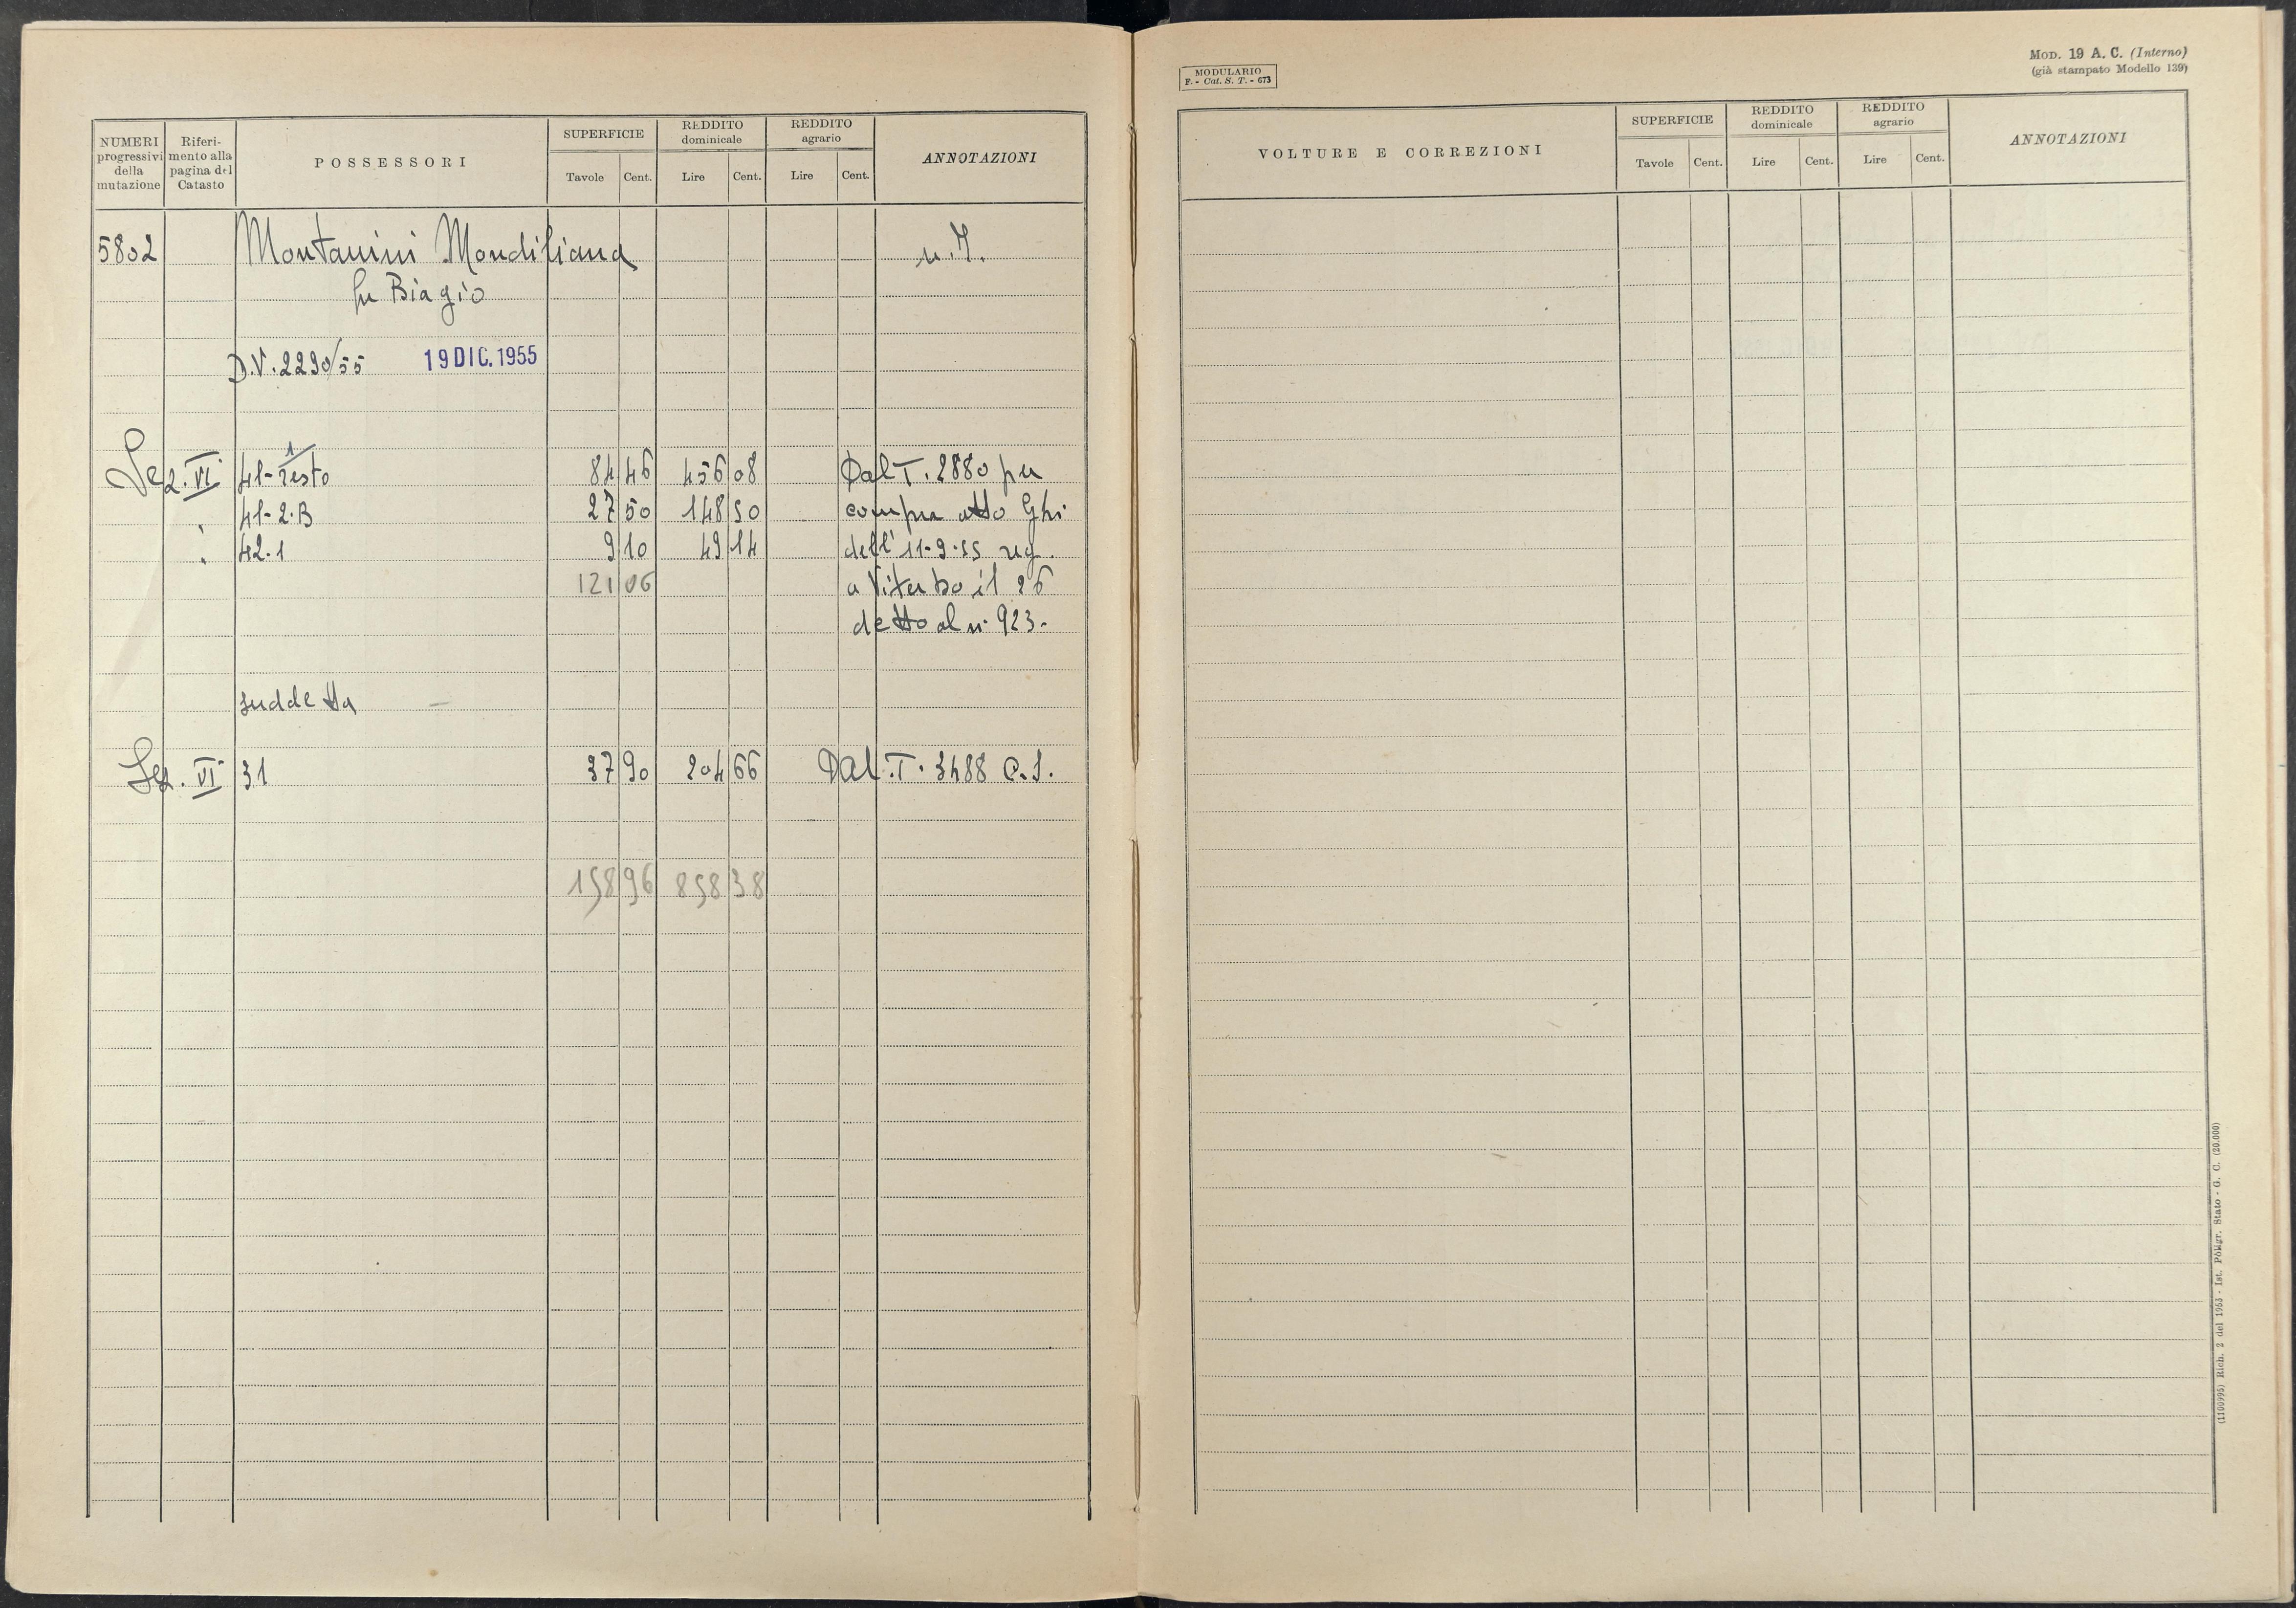 NUMERI progressivi della mutazione | Riferimento alla pagina del Catasto | POSSESSORI | SUPERFICIE Tavole Cent. | REDDITO dominicale Lire Cent. | REDDITO agrario Lire Cent. | ANNOTAZIONI
5802 Montanini Mondiliana
fu Biagio
D.V. 2290/55 19 DIC. 1955
Sez. VI 41-resto/1 84 46 456 08 Dal T. 2880 per
" 41-2.B 27 50 148 50 compra atto Ghi
" 42.1 9 10 49 14 dell' 11-9-55 reg.
121 06 a Viterbo il 26
detto al n. 923.
suddetta
Sez. VI 31 37 90 204 66 Dal T. 3488 C.S.
158 96 858 38
MODULARIO
F. - Cat. S. T. - 673
MOD. 19 A. C. (Interno)
(già stampato Modello 139)
VOLTURE E CORREZIONI | SUPERFICIE Tavole Cent. | REDDITO dominicale Lire Cent. | REDDITO agrario Lire Cent. | ANNOTAZIONI
(1100995) Rich. 2 del 1953 - Ist. Poligr. Stato - G. C. (20.000)